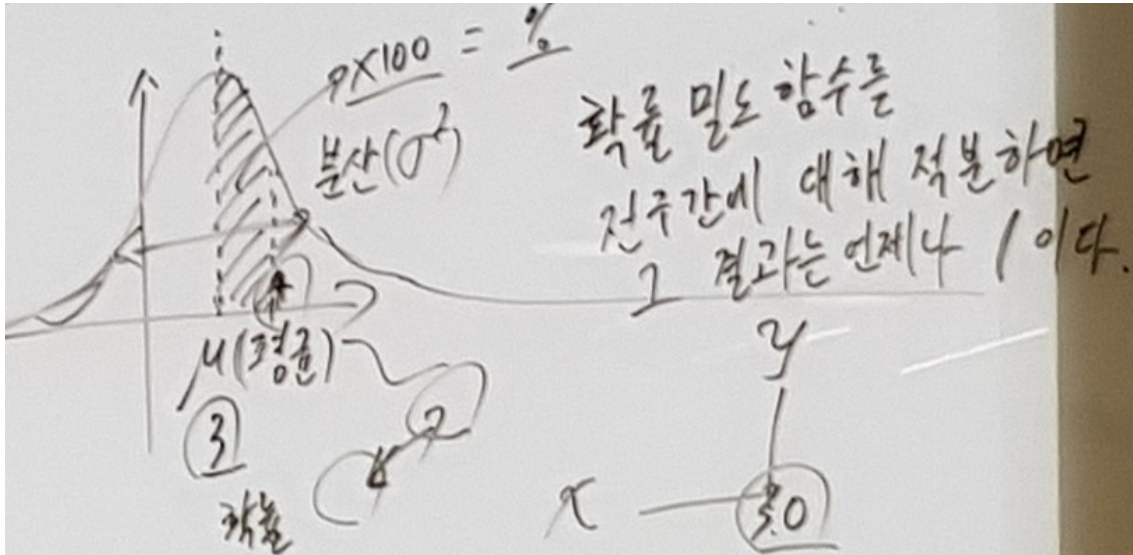 P×100 = %
분산(σ²)
확률 밀도 함수를
전구간에 대해 적분하면
그 결과는 언제나 1이다.
μ(평균)
3
확률
y
x
3.0